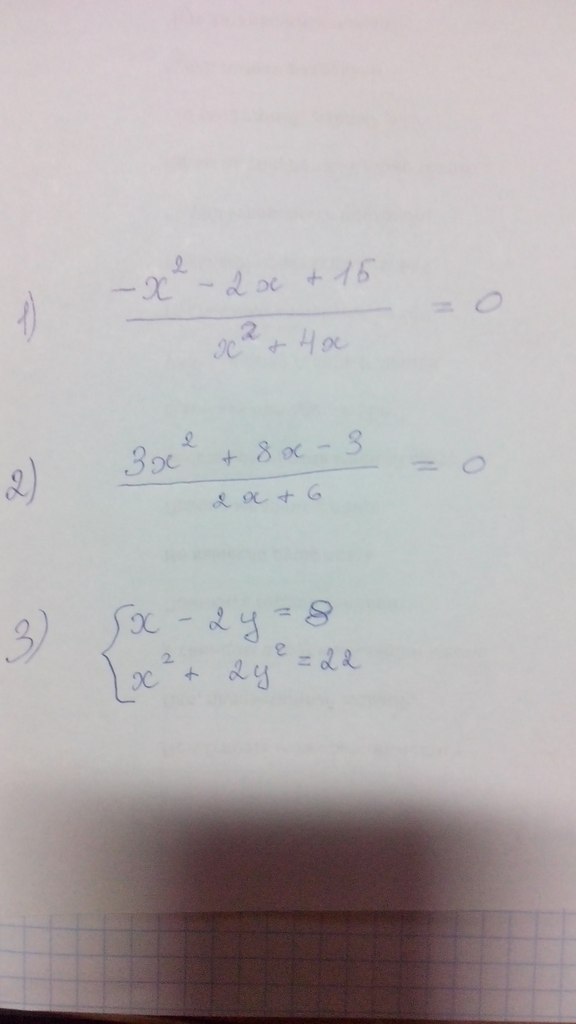 1) (-x² - 2x + 15)/(x² + 4x) = 0
2) (3x² + 8x - 3)/(2x + 6) = 0
3) { x - 2y = 8
x² + 2y² = 22